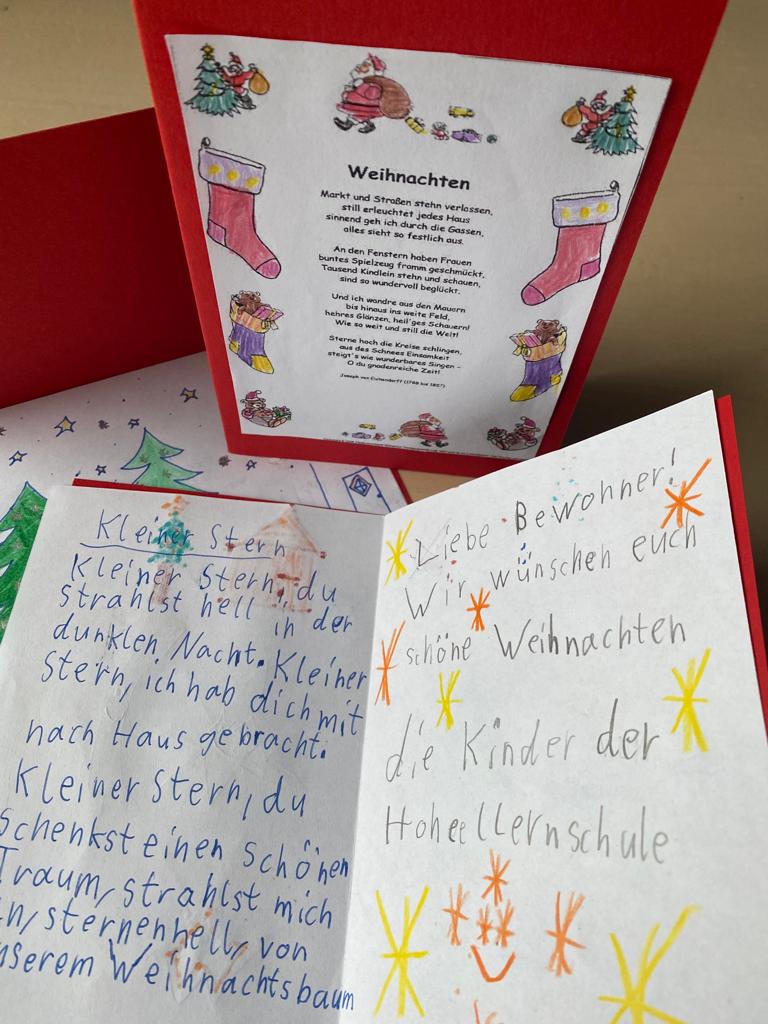 Weihnachten
Markt und Straßen stehn verlassen,
still erleuchtet jedes Haus
sinnend geh ich durch die Gassen,
alles sieht so festlich aus.
An den Fenstern haben Frauen
buntes Spielzeug fromm geschmückt,
Tausend Kindlein stehn und schauen,
sind so wundervoll beglückt.
Und ich wandre aus den Mauern
bis hinaus ins weite Feld,
hehres Glänzen, heil'ges Schauern!
Wie so weit und still die Welt!
Sterne hoch die Kreise schlingen,
aus des Schnees Einsamkeit
steigt's wie wunderbares Singen -
O du gnadenreiche Zeit!
Joseph von Eichendorff (1788 bis 1857)
Kleiner Stern
Kleiner Stern, du
strahlst hell in der
dunklen Nacht. Kleiner
Stern, ich hab dich mit
nach Haus gebracht.
Kleiner Stern, du
Schenkst einen schönen
Traum, strahlst mich
n, sternenhell, von
nserem Weihnachtsbaum
Liebe Bewohner!
Wir wünschen euch
schöne Weihnachten
die Kinder der
Hoheellernschule